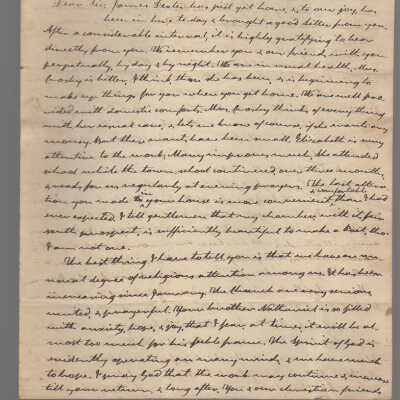 Dear Sir, James Leslie has just got home, & to our joy, has
been in here to day & brought a good letter from you.
After a considerable interval, it is highly gratifying to hear
directly from you. We remember you & our friends with you
perpetually by day & by night. We are in usual health. Mrs.
Crosby is better, I think than she has been, & is beginning to
make up things for you when you get home. We are well pro-
vided with domestic comforts. Mrs. Crosby thinks of everything
with her usual care, & lets me know of course, if she wants any
money. But the wants have been small. Elizabeth is very
attentive to the work, & improves much. She attended
school while the town school continued, over three months,
& reads for us regularly at evening prayers. The last altera-
tion you made in your house is more convenient & comfortable than I had
ever expected. I tell gentlemen that my chamber, with it fine
south prospect, is sufficiently beautiful to make a poet, tho.
I am not one.
The best thing I have to tell you is that we have an un-
usual degree of religious attention among us. It has been
increasing since January. The church are very
united, & prayerful. Your brother Nathaniel is so filled
with anxiety, hope, & joy, that I fear, at times, it will be al-
most too much for his feeble frame. The Spirit of God is
evidently operating on many minds, & we have much
to hope. I pray God that the work may continue & increase
till your return, & long after. You & our christian friends